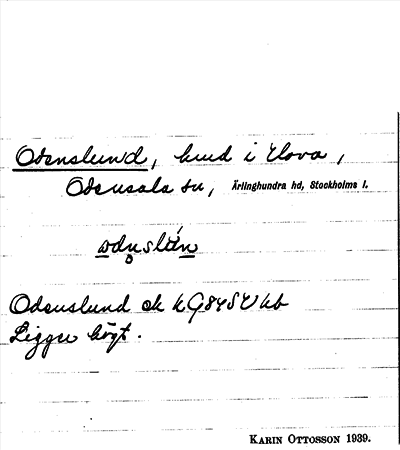 Odenslund, hmd i Elova,
Odensala sn, Ärlinghundra hd, Stockholms l.
odnslún
Odenslund ek kG84SVhb
Ligger högt.
KARIN OTTOSSON 1939.